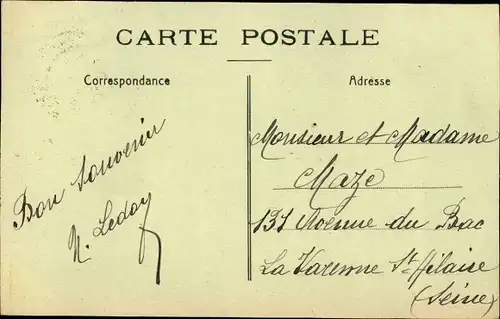 CARTE POSTALE
Correspondance
Adresse
Bon Souvenir
Monsieur et Madame
Maze
131 Avenue du Bac
La Varenne St Hilaire
(Seine)